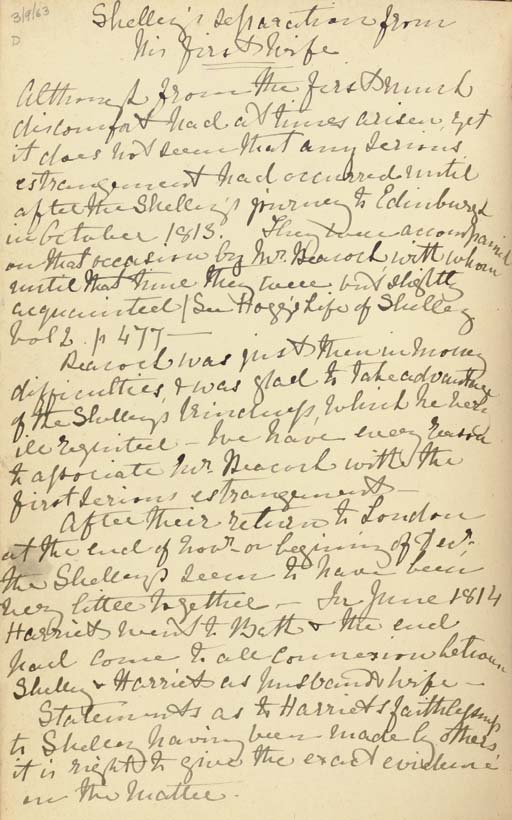 3/9/63
D
Shelley's separation from
his first Wife
Although from the first much
discomfort had at times arisen, yet
it does not seem that any serious
estrangement had occurred until
after the Shelley's journey to Edinburgh
in October 1813. They were accompanied
on that occasion by Mr. Peacock, with whom
until that time they were but slightly
acquainted (See Hogg's Life of Shelley
Vol 2. p 477 —
Peacock was just then in money
difficulties, & was glad to take advantage
of the Shelleys kindness, which he very
ill requited — We have every reason
to associate Mr. Peacock with the
first serious estrangement —
After their return to London
at the end of Novr. or begining of Decr.
the Shelleys seem to have been
very little together — In June 1814
Harriet went to Bath & the end
had come to all connexion between
Shelley & Harriet as husband & wife —
Statements as to Harriet's faithlessness
to Shelley having been made by others
it is right to give the exact evidence
on the matter.